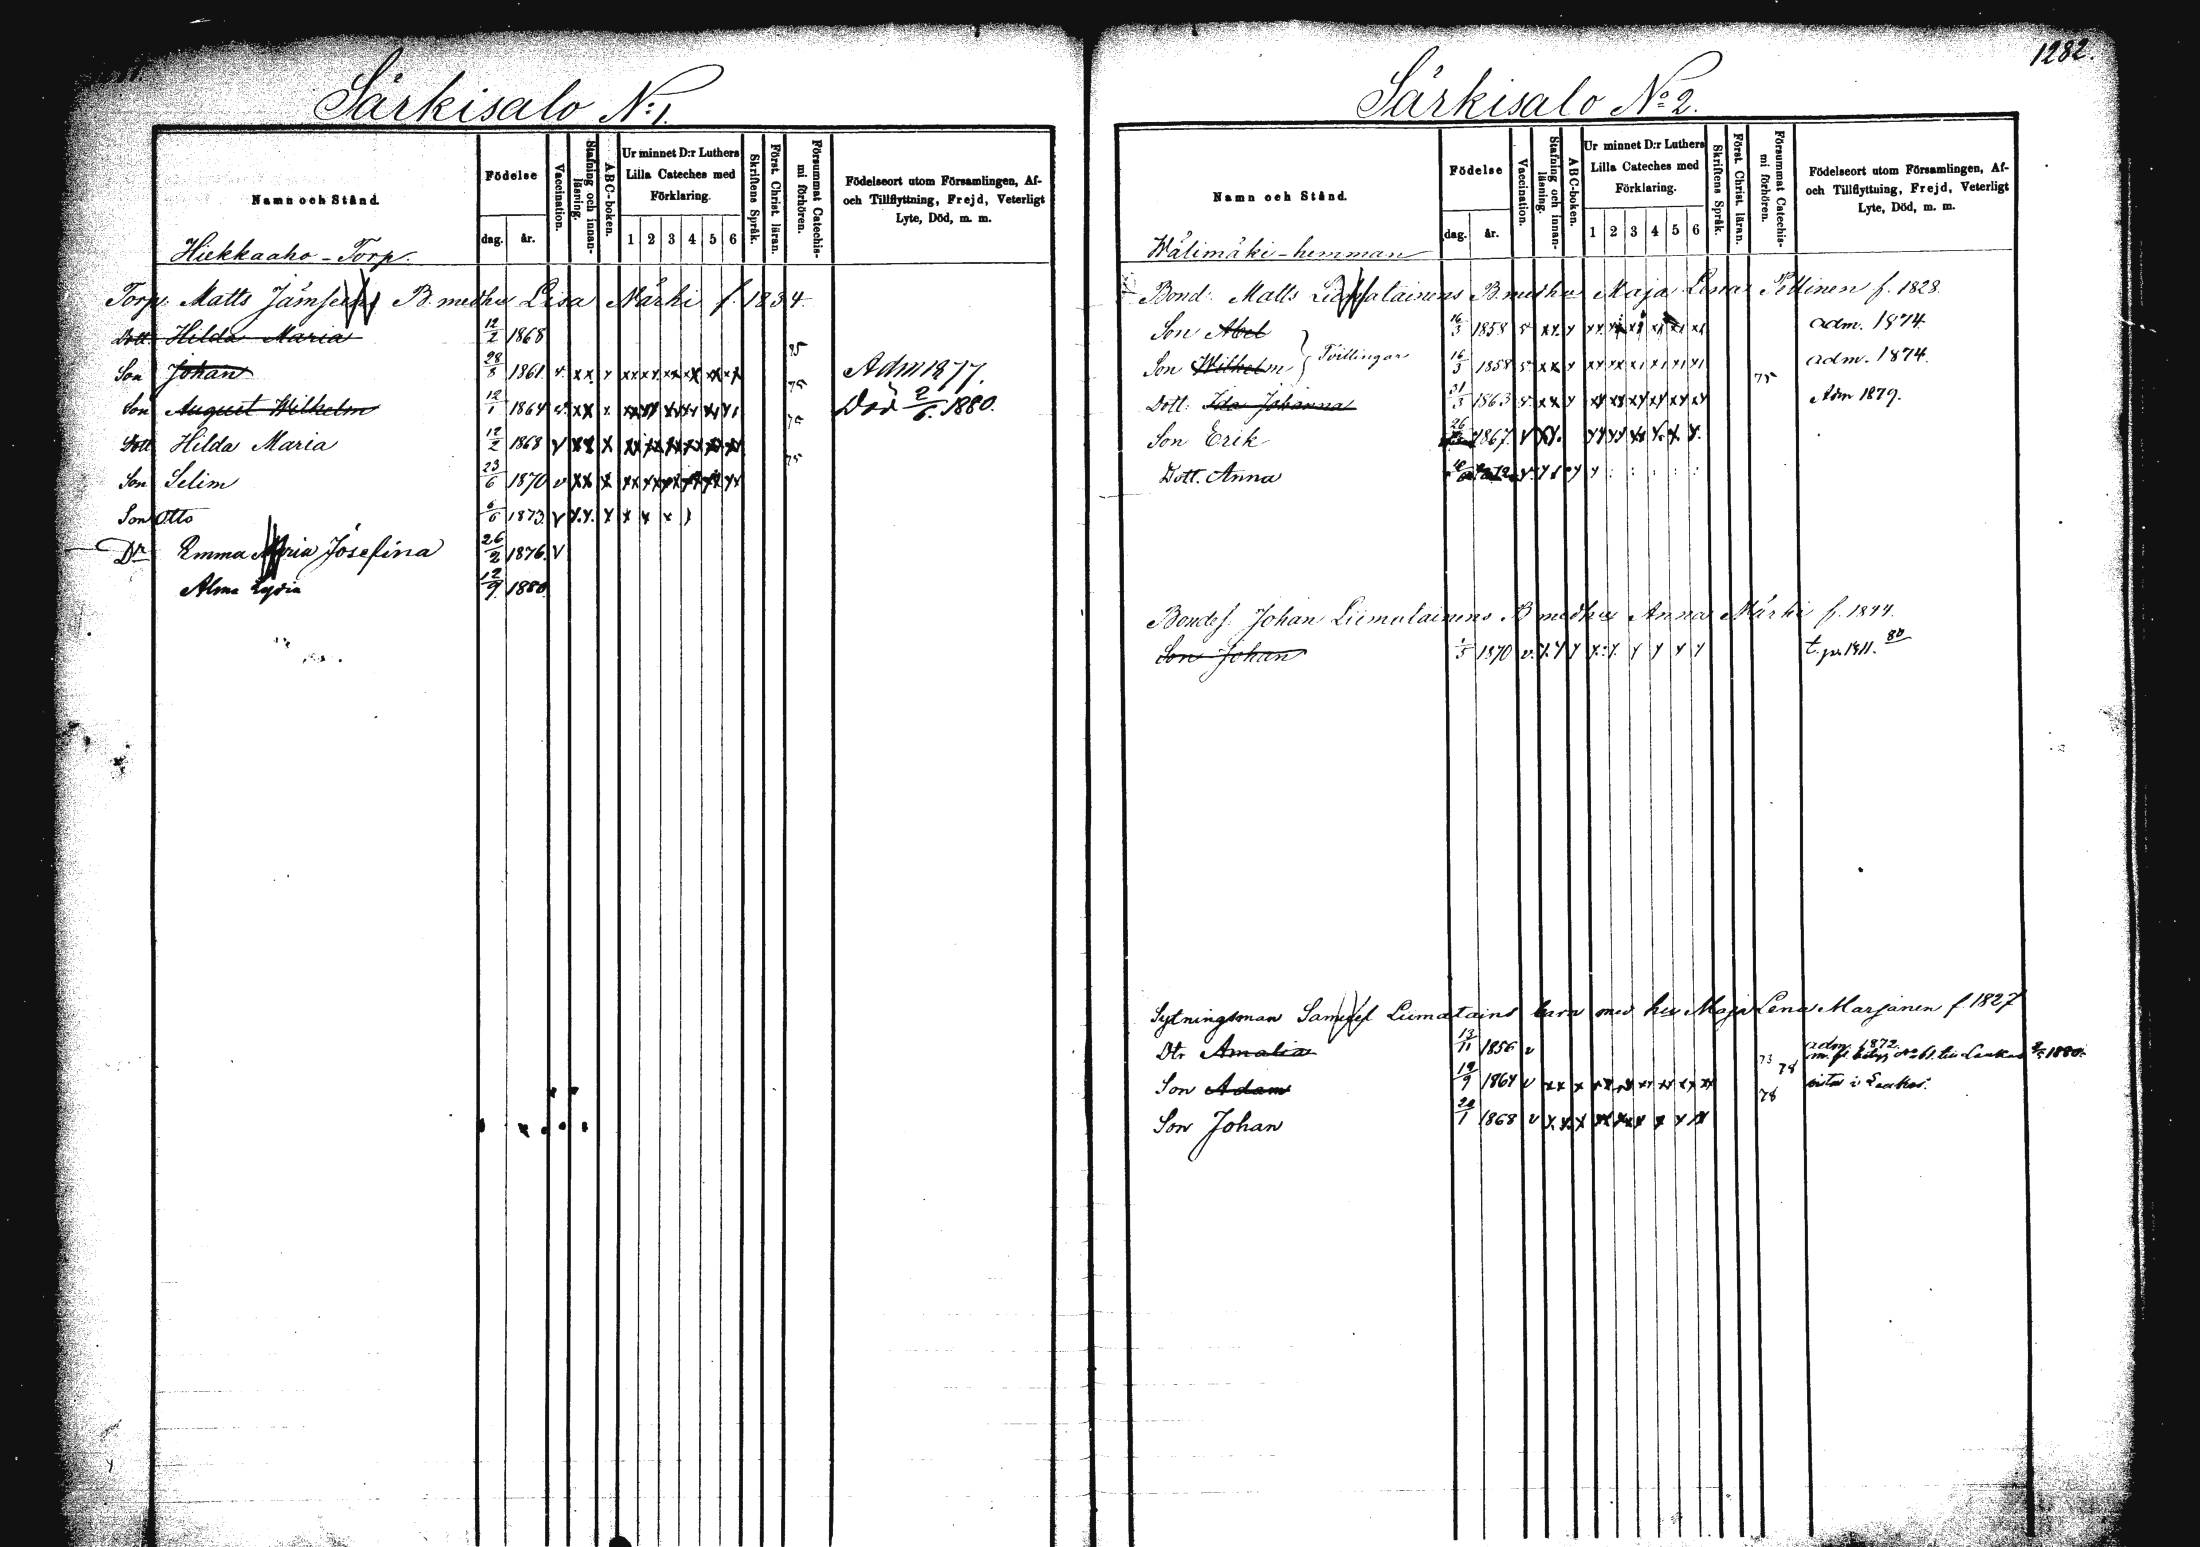 Särkisalo N:1.
Namn och Stånd.
Födelse
dag.
år.
Vaccination.
Stafning och innan-
läsning.
ABC-boken.
Ur minnet D:r Luthers
Lilla Cateches med
Förklaring.
1 2 3 4 5 6
Skriftens Språk.
Först. Christ. läran.
Försummat Catechis-
mi förhören.
Födelseort utom Församlingen, Af-
och Tillflyttning, Frejd, Veterligt
Lyte, Död, m. m.
Hiekkaaho - Torp.
Torp. Matts Jämsens B. med hu Lisa Närhi f. 1834
Dott. Hilda Maria 12/2 1868
Son Johan 28/8 1861 v xx x xx xx xx xx xx xx 75 Adm 1877.
Son August Wilhelm 12/1 1864 v xx x xx xx xx xx xx 75 Död 2/6 1880.
Dott Hilda Maria 12/2 1868 v xx x xx xx xx xx xx xx 75
Son Selim 23/6 1870 v xx x xx xx xx xx xx xx 75
Son Otto 6/6 1873 v x.x. x x x x
Dr Emma Maria Josefina 26/2 1876 v
Alma Lydia 12/9 1880
1282.
Särkisalo No 2.
Namn och Stånd.
Födelse
dag.
år.
Vaccination.
Stafning och innan-
läsning.
ABC-boken.
Ur minnet D:r Luthers
Lilla Cateches med
Förklaring.
1 2 3 4 5 6
Skriftens Språk.
Först. Christ. läran.
Försummat Catechis-
mi förhören.
Födelseort utom Församlingen, Af-
och Tillflyttning, Frejd, Veterligt
Lyte, Död, m. m.
Wälimäki - hemman
Bond. Matts Liimatainens B. med hu Maja Lena Pittinen f. 1828.
Son Abel 16/3 1858 v xx x xx xx xx xx xx xx adm. 1874.
Son Wilhelm } Tvillingar 16/3 1858 v xx x xx xx xx xx xx xx adm. 1874.
Dott: Ida Johanna 31/3 1863 v xx x xx xx xx xx xx xx 75 Adm 1879.
Son Erik 26 1867. v xx. xx xx xx x. x x.
Dott. Anna
Bondes. Johan Liimatainens B med hu Anna Närhi f. 1844.
Son Johan 1/5 1870 v. x x x x x x x x x t. pa 1411. 80
Sytningsman Samuel Liimatains barn med hu Maja Lena Marjanen f. 1827
Dtr Amalia 13/11 1856 v 73 78 adm. 1872. 1880.
Son Adam 19/9 1864 v xx x xx xx xx xx xx xx 78
Son Johan 20/1 1868 v x x x xx xx x x x xx